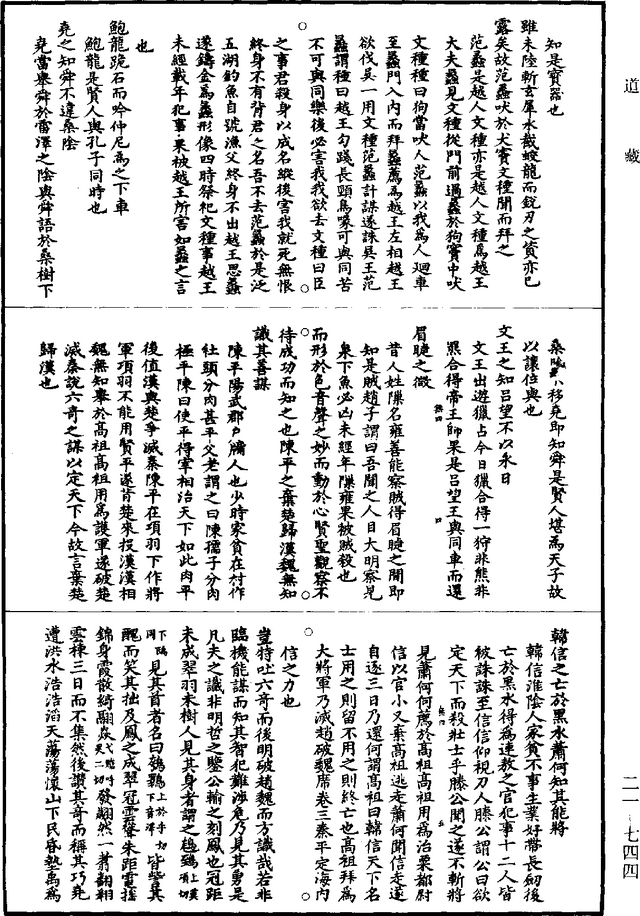 道藏
知是寶器也
雖未陸斬玄犀水截蛟龍而銳刃之質亦已
露矣故范蠡吠於犬竇文種聞而拜之
范蠡是越人文種亦是越人文種為越王
大夫蠡見文種從門前過蠡於狗竇中吠
文種種曰狗當吠人范蠡以我為人迴車
至蠡門入內而拜蠡薦為越王左相越王
欲伐吳一用文種范蠡計謀遂誅吳王范
蠡謂種曰越王勾踐長頸鳥喙可與同苦
不可與同樂後必害我我欲去文種曰臣
之事君殺身以成名縱後害我就死無恨
終身不有背君之名吾不去范蠡於是泛
五湖釣魚自號漁父終身不出越王思蠡
遂鑄金為蠡形像四時祭祀文種事越王
未經載年犯事果被越王所害如蠡之言
也
鮑龍跪石而吟仲尼為之下車
鮑龍是賢人與孔子同時也
堯之知舜不違桑陰
堯當舉舜於雷澤之陰與舜語於桑樹下
桑陰移堯即知舜是賢人堪為天子故
以讓位與也
文王之知呂望不以永日
文王出遊獵占今日獵合得一狩非熊非
羆合得帝王師果是呂望王與同車而還
眉睫之微
昔人姓隙名雍善能察賊得眉睫之間即
知是賊趙子謂曰吾聞之人目大明察見
泉下魚必凶未經年隙雍果被賊殺也
而形於色音聲之妙而動於心賢聖觀察不
待成功而知之也陳平之棄楚歸漢魏無知
識其善謀
陳平陽武郡戶牖人也少時家貧在村作
社頭分肉甚平父老謂之曰陳孺子分肉
極平陳曰使平得宰相治天下如此肉平
後值漢與楚爭滅秦陳平在項羽下作將
軍項羽不能用賢平遂背楚來投漢漢相
魏無知舉於高祖高祖用為護軍遂破楚
滅秦說六奇之謀以定天下今故言棄楚
歸漢也
韓信之亡於黑水蕭何知其能將
韓信淮陰人家貧不事生業好帶長劒後
亡於黑水得為連敖之官犯事十二人皆
被誅誅至信信仰視刀人滕公謂公曰欲
定天下而殺壯士乎滕公聞之遂不斬將
見蕭何何薦於高祖高祖用為治粟都尉
信以官小又棄高祖逃走蕭何聞信走遂
自逐三日乃還何謂高祖曰韓信天下名
士用之則留不用之則終亡也高祖拜為
大將軍乃滅趙破魏席卷三秦平定海內
信之力也
豈特吐六奇而後明破趙魏而方識哉若非
臨機能謀而知其智犯難涉危乃見其勇是
凡夫之識非明哲之鑒公輸之刻鳳也冠距
未成翠羽未樹人見其身者謂之𪁪鵄
見其首者名曰鵜鶘 皆訾其
醜而笑其拙及鳳之成翠冠雲聳朱距電搖
錦身霞散綺翮焱發翽然一翥翻翔
雲棟三日而不集然後讚其奇而稱其巧堯
遭洪水浩浩滔天蕩蕩懷山下民昏墊禹為
二一
七四四